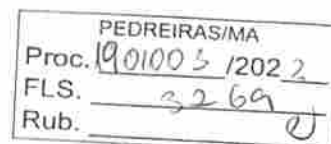 PEDREIRAS/MA
Proc. 1901003 /2022
FLS. 3269
Rub.